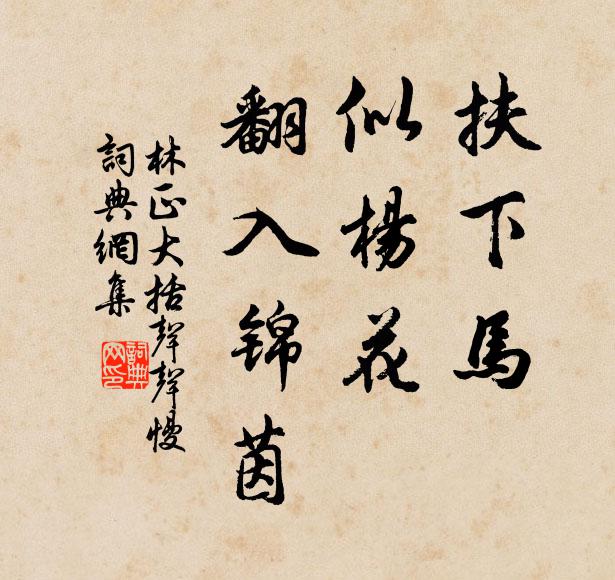 扶下馬
似楊花
翻入锦茵
林正大括聲聲慢
詞典網集
詞典網印